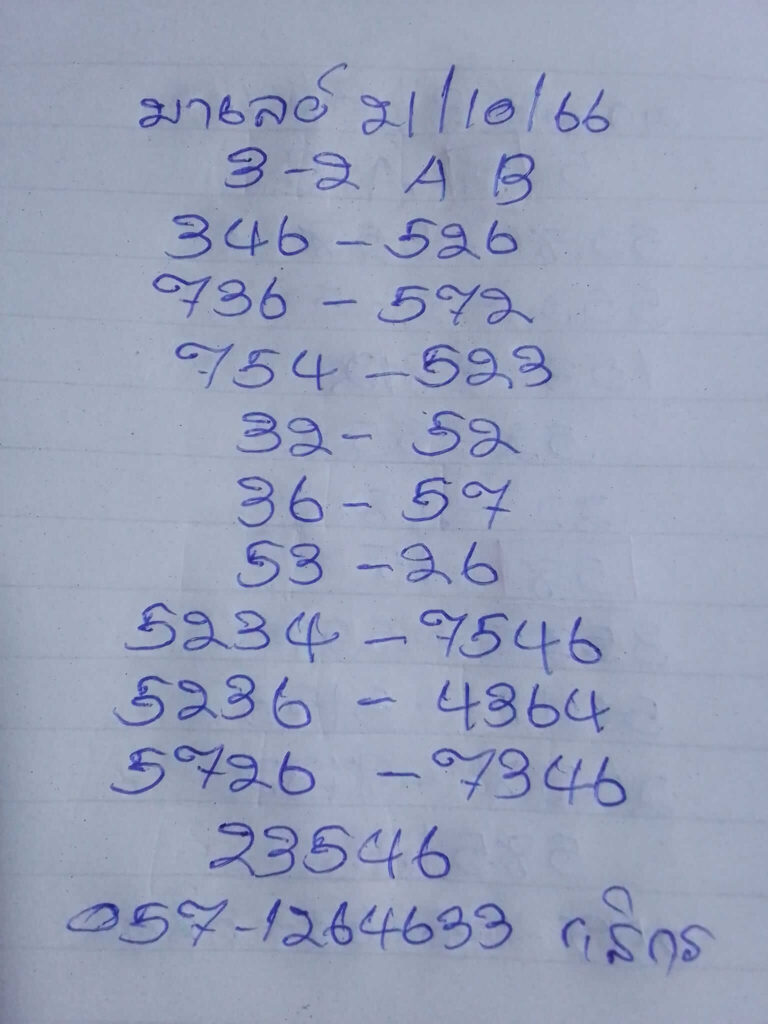 มาเลย์ 21/10/66
3-2 A B
346 - 526
736 - 572
754 - 523
32 - 52
36 - 57
53 - 26
5234 - 7546
5236 - 4364
5726 - 7346
23546
057-1264633